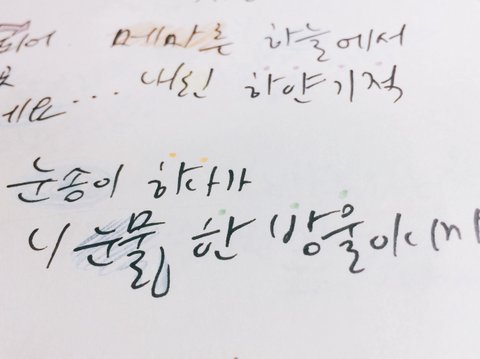 되어 메마른 하늘에서
세요... 내린 하얀 기적
눈송이 하나가
니 눈물 한 방울이니까